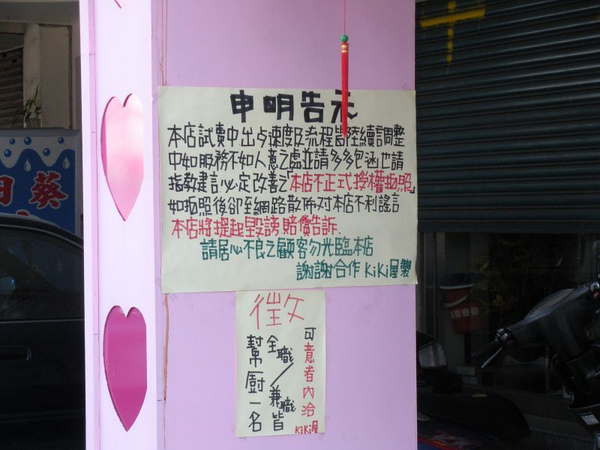 申明告示
本店試賣中出占速度及流程皆陸續調整
中如服務不如人意之處並請多多包涵也請
指教建言必定改善之「本店不正式授權拍照」
如拍照後卻至網路散佈对本店不利謠言
本店將提起毀謗賠償告訴.
請居心不良之顧客勿光臨本店
謝謝合作 KiKi屋製
徵
可意者內洽 KiKi屋
全職/兼職皆
幫廚一名
葵